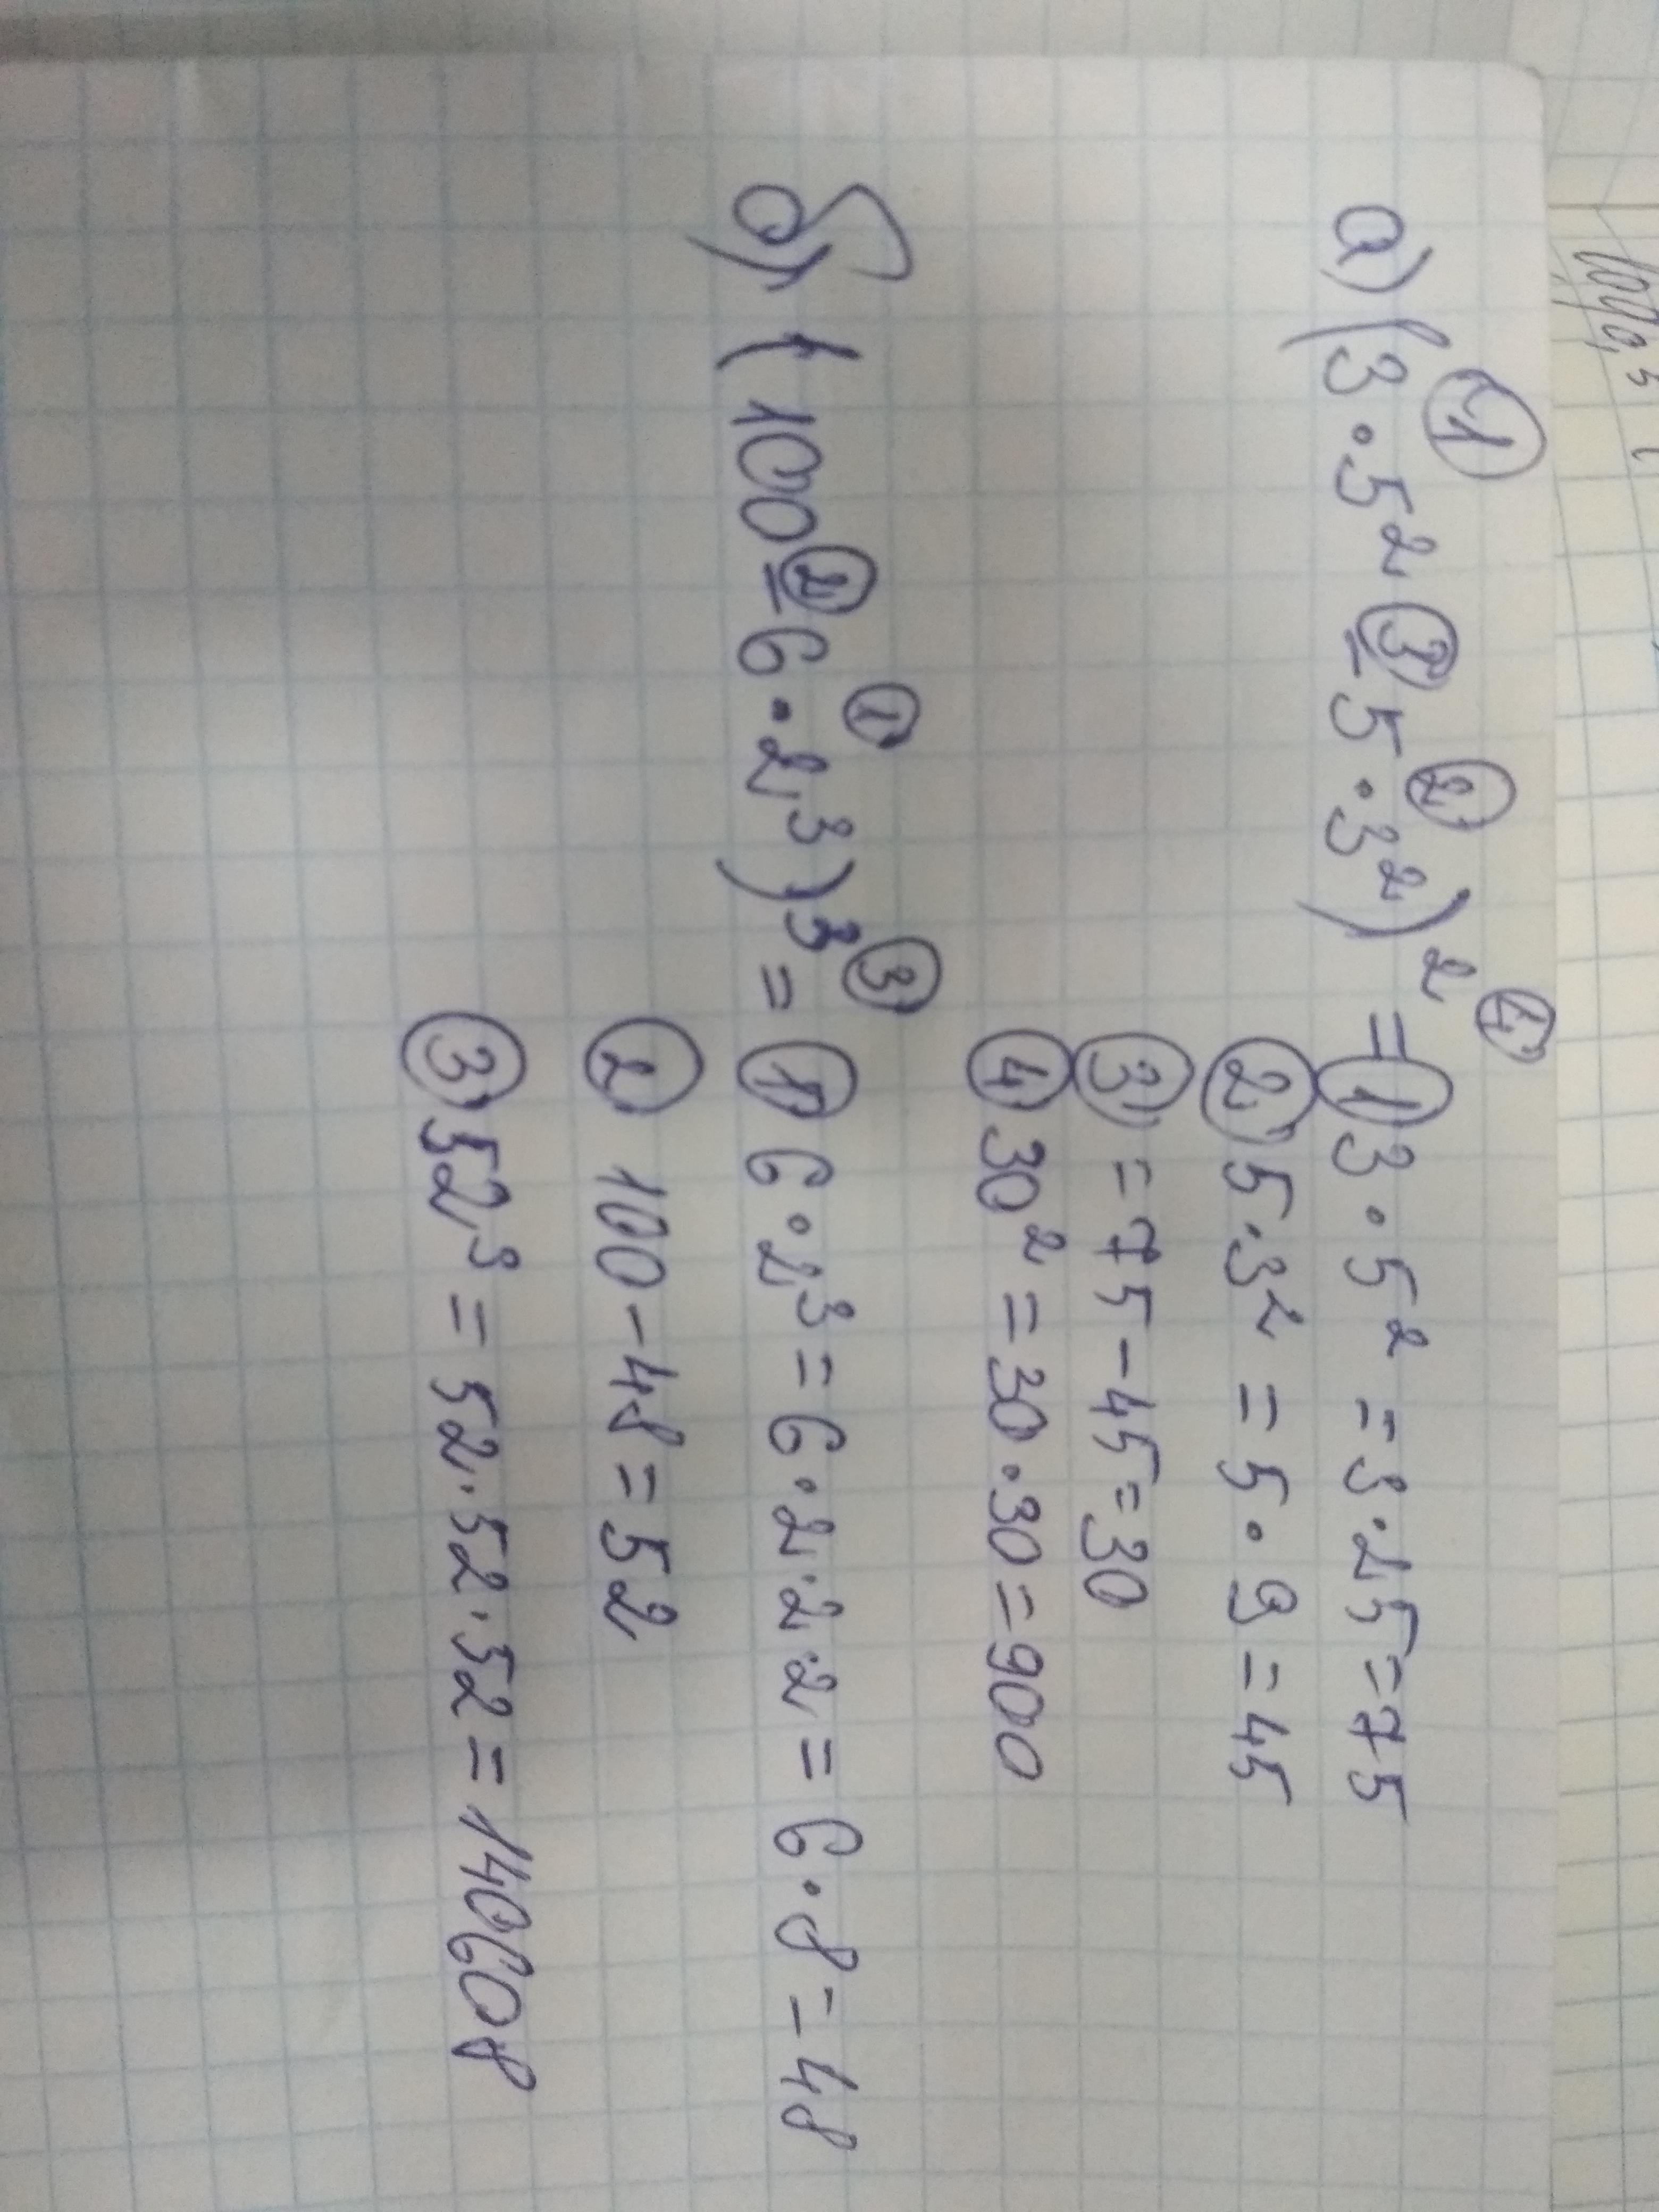 ① ③ ② ④
а) (3·5² - 5·3²)² = ① 3·5² = 3·25=75
② 5·3² = 5·9=45
③ =75-45=30
④ 30² = 30·30=900
② ① ③
б) (100 - 6·2³)³ = ① 6·2³ = 6·2·2·2 = 6·8=48
② 100-48=52
③ 52³ = 52·52·52=140608